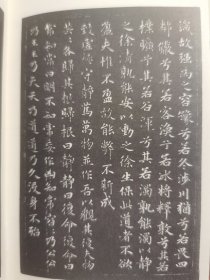 識故強為之容豫兮若冬涉川猶兮若畏四
鄰儼兮其若客渙兮若冰將釋敦兮其若
樸曠兮其若谷渾兮其若濁孰能濁以靜
之徐清孰能安以動之徐生保此道者不欲
盈夫惟不盈故能弊不新成
致虛極守靜篤萬物並作吾以觀其復夫物
芸芸各歸其根歸根曰靜靜曰復命復命曰
常知常曰明不知常妄作凶知常容容乃公公
乃王王乃天天乃道道乃久沒身不殆